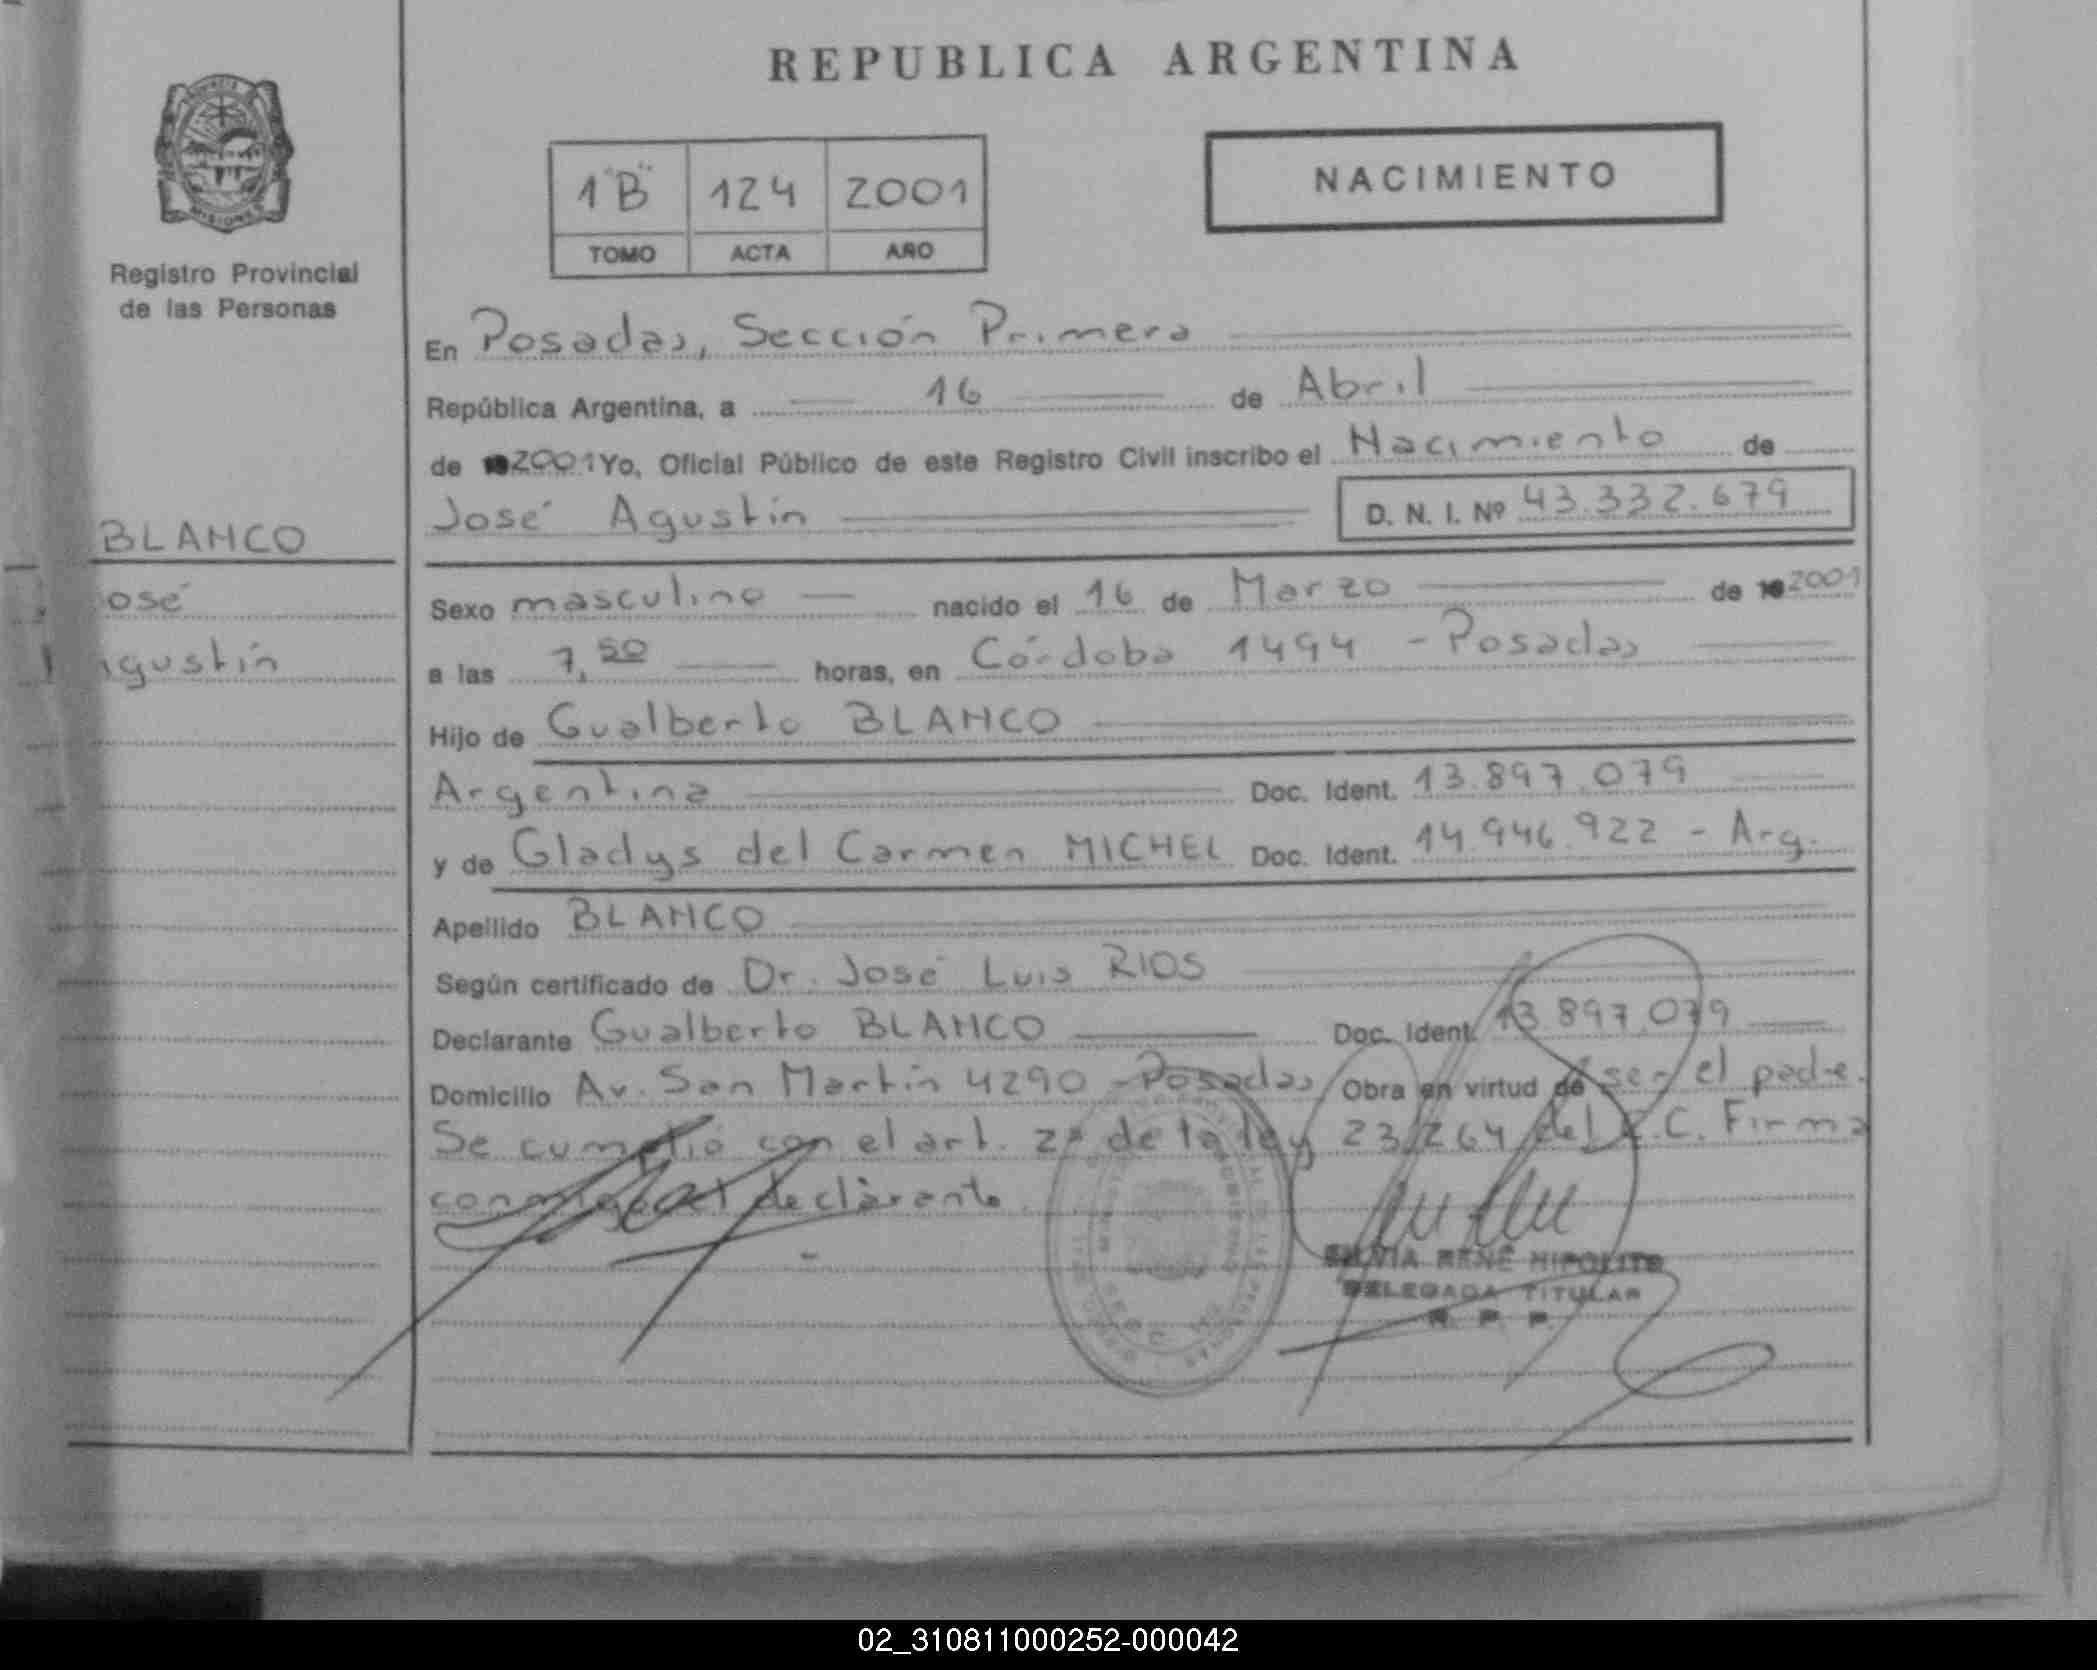 REPUBLICA ARGENTINA
MISIONES
Registro Provincial
de las Personas
1"B" 124 2001
TOMO ACTA AÑO
NACIMIENTO
En Posadas, Sección Primera
República Argentina, a 16 de Abril
de 2001 Yo, Oficial Público de este Registro Civil inscribo el Nacimiento de
José Agustín D. N. I. Nº 43.332.679
BLANCO
José
Agustín
Sexo masculino nacido el 16 de Marzo de 2001
a las 7,50 horas, en Córdoba 1494 - Posadas
Hijo de Gualberto BLANCO
Argentina Doc. Ident. 13.897.079
y de Gladys del Carmen MICHEL Doc. Ident. 14.946.922 - Arg.
Apellido BLANCO
Según certificado de Dr. José Luis RIOS
Declarante Gualberto BLANCO Doc. Ident. 13.897.079
Domicilio Av. San Martín 4290 - Posadas Obra en virtud de ser el padre.
Se cumplió con el art. 2º de la ley 23.264 del C.C. Firma
conmigo el declarante.
SILVIA RENÉ HIPOLITO
DELEGADA TITULAR
R. P. P.
02_310811000252-000042